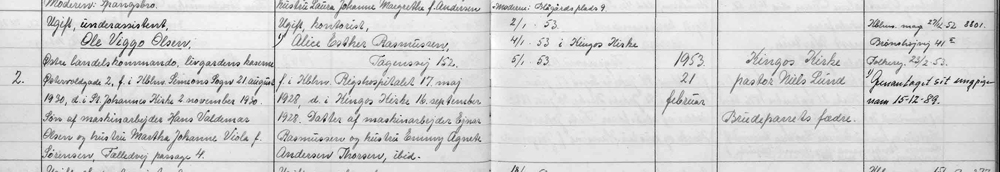 Moderen: Spangsbro. hustru Laura Johanne Margrethe f. Andersen
Ugift, underassistent,
Ole Viggo Olsen,
Østre landelskommando, livgardens kaserne
2. Østervoldgade 2, f. i Kbhvn. Simeons Sogn 21 august
1930, d. i St. Johannes Kirke 2 november 1930.
Søn af maskinarbejder Hans Valdemar
Olsen og hustru Martha Johanne Viola f.
Sørensen, Fælledvej passage 4.
Ugift, kontorist,
1) Alice Esther Rasmussen,
Tagensvej 152.
f. i Kbhvn. Rigshospitalet 17 maj
1928, d. i Kingos Kirke 16 september
1928. Datter af maskinarbejder Ejnar
Rasmussen og hustru Emmy Agnete
Andersen Thorsen, ibid.
2/1 - 53.
4/1 - 53 i Kingos Kirke
5/1 - 53.
1953
21
februar
Kingos Kirke
pastor Niels Lund
Brudeparrets fædre.
Kbhvns. mag. 27/12 52 3801.
Brønshøjvej 41
Folkereg. 24/2 - 53.
1) Genantaget sit ungpige
navn 15-12-89.